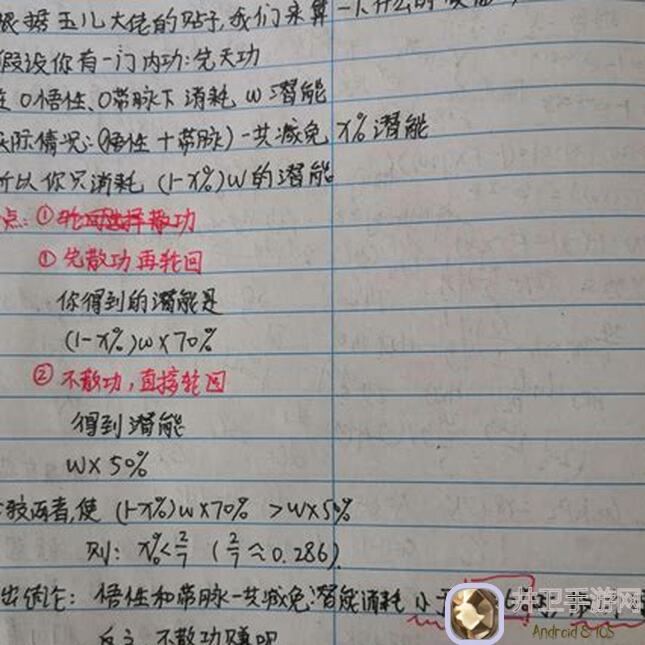 根据玉儿大佬的贴子,我们来算一下什么时
假设你有一门内功:先天功
在0悟性、0带脉下消耗 w 潜能
实际情况:(悟性+带脉)一共减免 x%潜能
所以你只消耗 (1-x%)w的潜能
点:①轮回选择散功
①先散功再轮回
你得到的潜能是
(1-x%)w×70%
②不散功,直接轮回
得到潜能
w×50%
较两者,使 (1-x%)w×70% >w×50%
则: x%<2/7 (2/7≈0.286)
出结论: 悟性和带脉一共减免潜能消耗小于
反之 不散功赚
井卫手游网
Android & IOS